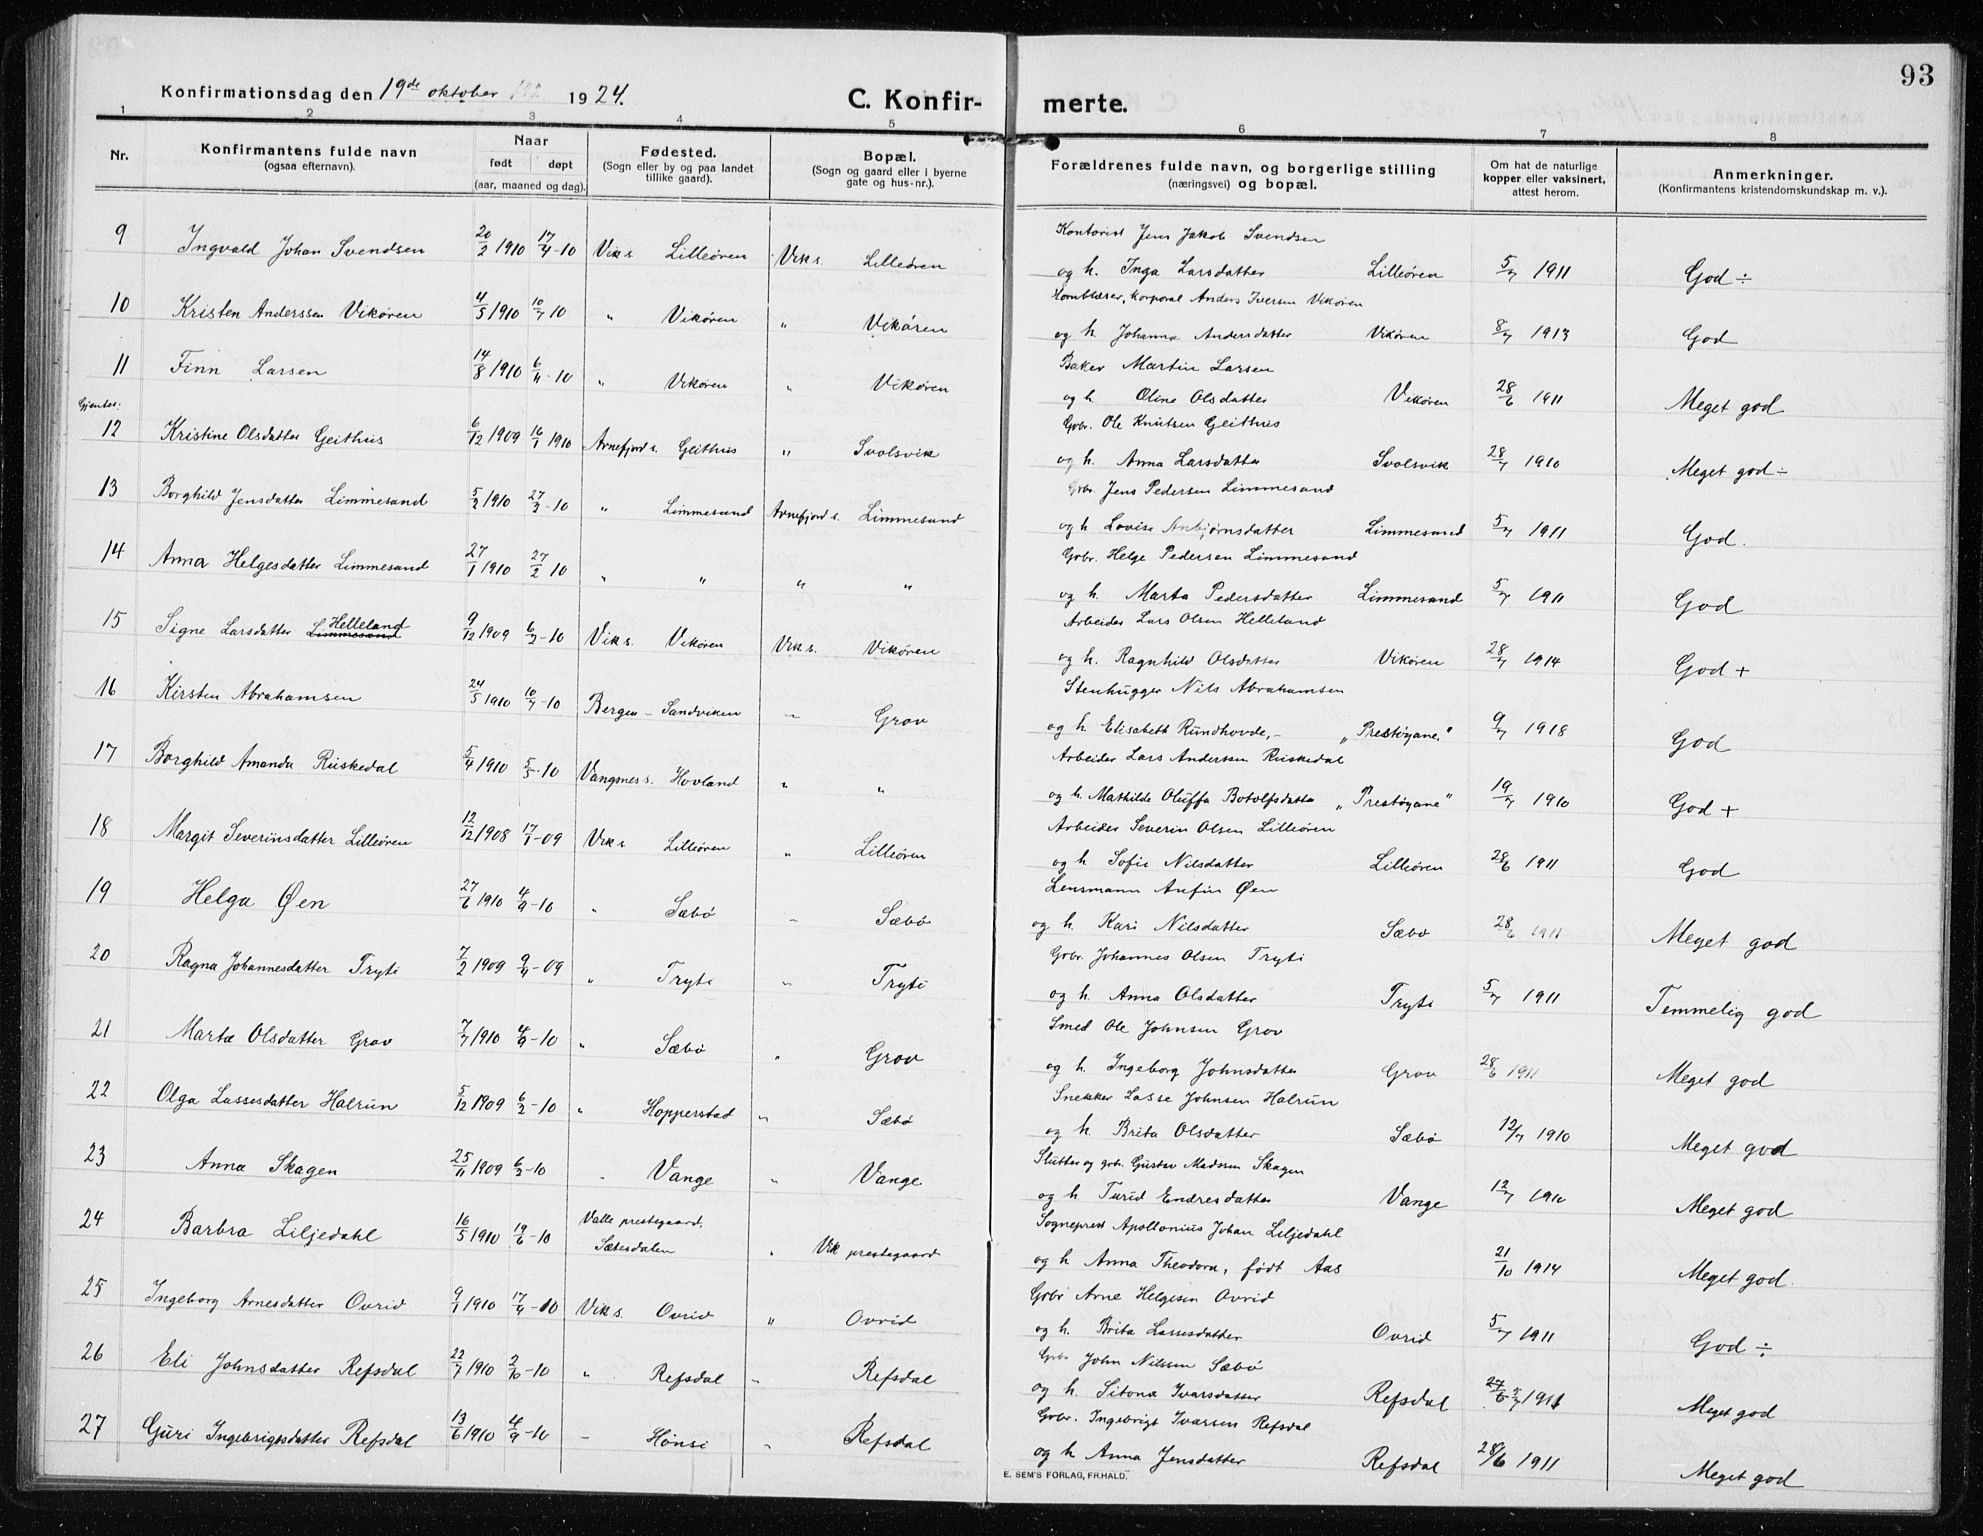 93
Konfirmationsdag den 19de oktober 1924.
C. Konfir- merte.
1 2 3 4 5 6 7 8
Nr.
Konfirmantens fulde navn
(ogsaa efternavn).
Naar
født døpt
(aar, maaned og dag).
Fødested.
(Sogn eller by og paa landet
tillike gaard).
Bopæl.
(Sogn og gaard eller i byerne
gate og hus-nr.).
Forældrenes fulde navn, og borgerlige stilling
(næringsvei) og bopæl.
Om hat de naturlige
kopper eller vaksinert,
attest herom.
Anmerkninger.
(Konfirmantens kristendomskundskap m. v.).
Kontorist Jens Jakob Svendsen
9 Ingvald Johan Svendsen 20/2 1910 17/4-10 Vik s. Lilleøren Vik s. Lilleøren og h. Inga Larsdatter Lilleøren 5/7 1911 God ÷
Hornblæser, korporal Anders Iversen Vikøren
10 Kristen Anderssen Vikøren 4/5 1910 10/7 10 " Vikøren " Vikøren og h. Johanna Andersdatter Vikøren 8/7 1913 God
Baker Martin Larsen
11 Finn Larsen 14/8 1910 6/11-10 " Vikøren " Vikøren og h Oline Olsdatter Vikøren 28/6 1911 Meget god
Gjenter:
Gbr. Ole Knutsen Geithus
12 Kristine Olsdatter Geithus 6/12 1909 16/1 1910 Arnefjord s. Geithus " Svolsvik og h. Anna Larsdatter Svolsvik 28/7 1910 Meget god ÷
Gbr. Jens Pedersen Limmesand
13 Borghild Jensdatter Limmesand 5/2 1910 27/2-10 " Limmesand Arnefjord s. Limmesand og h Lovise Anbjørnsdatter Limmesand 5/7 1911 God.
Gbr. Helge Pedersen Limmesand
14 Anna Helgesdatter Limmesand 27/1 1910 27/2 10 " " " " og h. Marta Pedersdatter Limmesand 5/7 1911 God
Arbeider Lars Olsen Helleland
15 Signe Larsdatter Limmesand Helleland 9/12 1909 6/2-10 Vik s. Vikøren Vik s. Vikøren og h. Ragnhild Olsdatter Vikøren 28/7 1914 God +
Stenhugger Nils Abrahamsen
16 Kirsten Abrahamsen 24/5 1910 10/7-10 Bergen - Sandviken " Grov og h Elisabeth Rundhovde, - „Prestøyane." 9/7 1918 God
Arbeider Lars Anderssen Riskedal
17 Borghild Amanda Riskedal 5/4 1910 5/5-10 Vangsnes s. Hovland " " og h. Mathilde Oluffa Botolfsdatter „Prestøyane" 19/7 1910 God +
Arbeider Severin Olsen Lilleøren
18 Margit Severinsdatter Lilleøren 12/12 1908 17/1-09 Vik s Lilleøren " Lilleøren og h Sofie Nilsdatter Lilleøren 28/6 1911 God
Lensmann Anfin Øen
19 Helga Øen 27/6 1910 4/9-10 " Sæbø " Sæbø og h. Kari Nilsdatter Sæbø 28/6 1911 Meget god
Gbr. Johannes Olsen Tryti
20 Ragna Johannesdatter Tryti 7/2 1909 9/4-09 " Tryti " Tryti og h. Anna Olsdatter Tryti 5/7 1911 Temmelig god
Smed Ole Johnsen Grov
21 Marta Olsdatter Grov 7/7 1910 4/9-10 " Sæbø " Grov og h. Ingeborg Johnsdatter Grov 28/6 1911 Meget god
Snekker Lasse Johnsen Halrun
22 Olga Lassesdatter Halrun 5/12 1909 6/2-10 " Hopperstad " Sæbø og h. Brita Olsdatter Sæbø 12/7 1910 Meget god
Slutter og gbr. Gustav Madssen Skagen
23 Anna Skagen 25/11 1909 6/2-10 " Vange " Vange og h Turid Endresdatter Vange 12/7 1910 Meget god
Sogneprest Apollonius Johan Liljedahl
24 Barbra Liljedahl 16/5 1910 19/6-10 Valle prestegaard, Sætesdalen " Vik prestegaard og h Anna Theodora, født Aas 21/10 1914 Meget god.
Gbr Arne Helgesen Ovrid
25 Ingeborg Arnesdatter Ovrid 9/1 1910 17/4-10 Vik s. Ovrid " Ovrid og h. Brita Lassesdatter Ovrid 5/7 1911 God ÷
Gbr John Nilssen Sæbø
26 Eli Johnsdatter Refsdal 22/7 1910 2/10-10 " Refsdal " Refsdal og h. Sitona Ivarsdatter Refsdal 5/7 1911 Meget god
Gbr. Ingebrigt Ivarsen Refsdal
27 Guri Ingebrigtsdatter Refsdal 13/6 1910 4/9-10 " Hønsi " Refsdal og h Anna Jensdatter Refsdal 28/6 1911 Meget god
E. SEM'S FORLAG, FR.HALD.